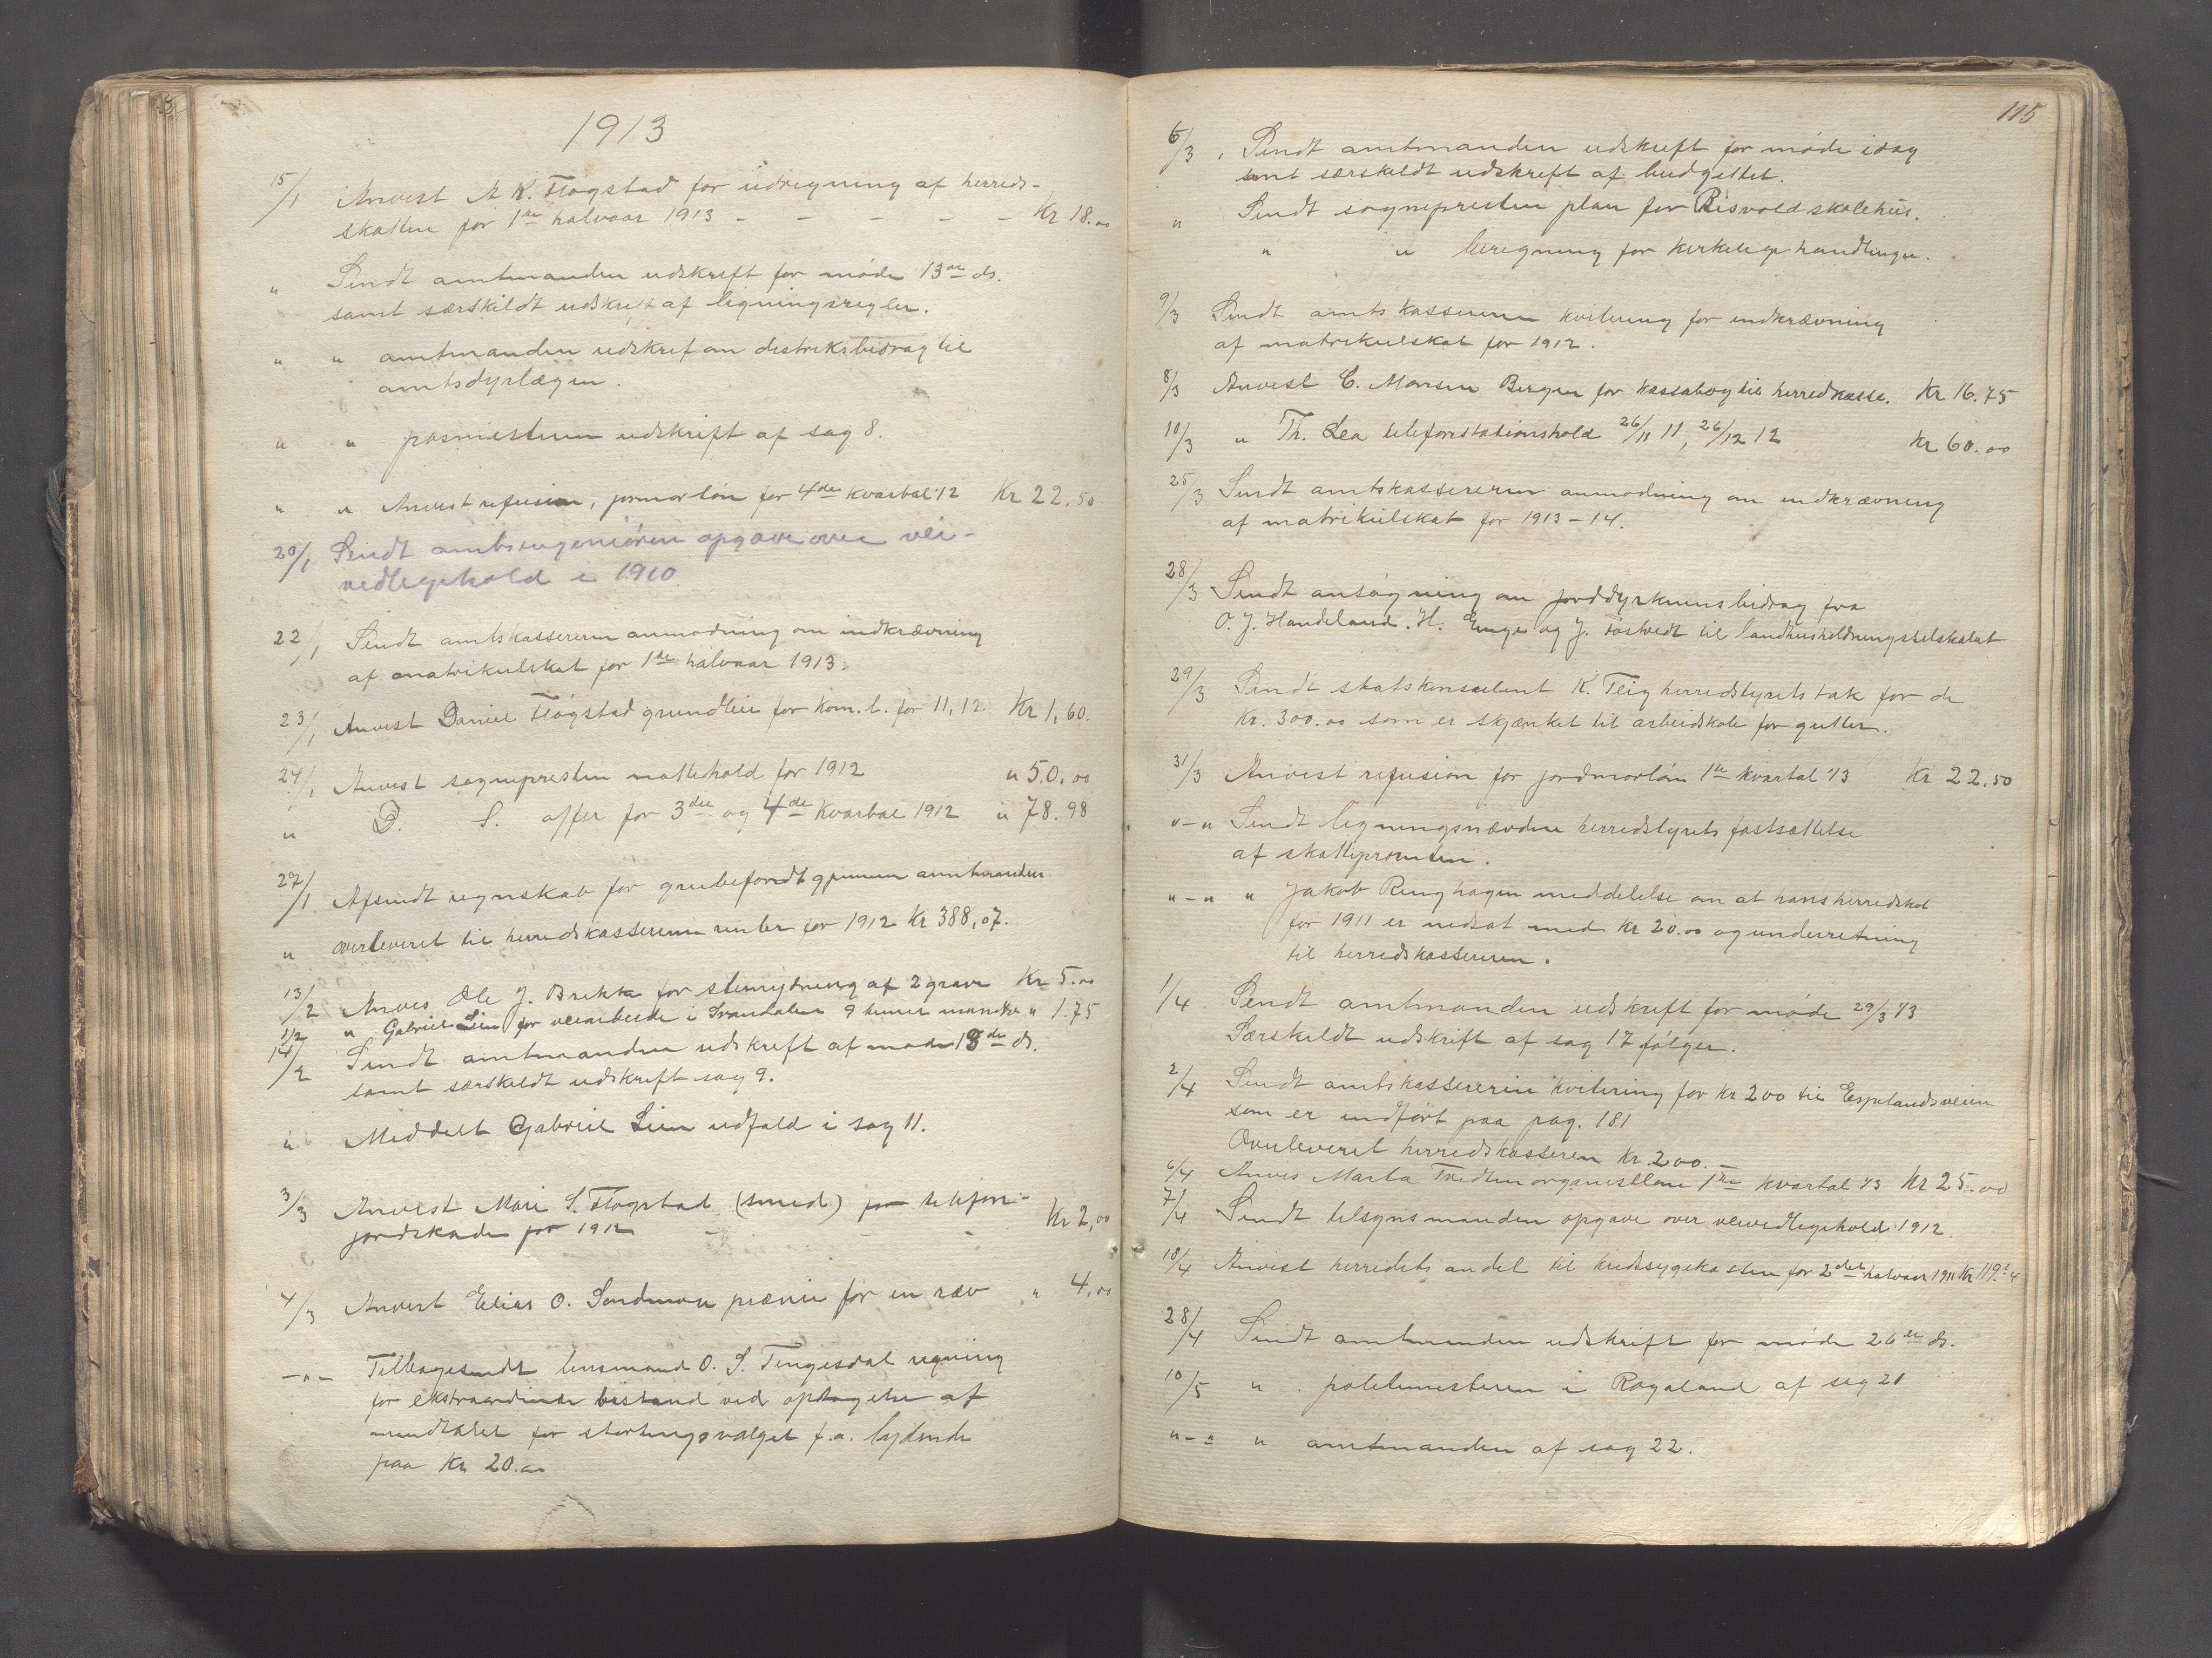 1913
15/1 Anvist A K. Fløgstad for udregning af herreds-
skatten for 1ste halvaar 1913 - - - - - Kr 18.00
" Sendt amtmanden udskrift for møde 13de ds.
samt særskildt udskrift af ligningsregler.
" " amtmanden udskrif om distriksbidrag til
amtsdyrlægen.
" " udskrift af sag 8.
" " Anvist refusion, jormorløn for 4de kvartal 12 Kr 22.50
20/1 Sendt amtsingeniøren opgave over vei-
vedlegehold i 1910
22/1 Sendt amtskassereren anmodning om indkrævning
af matrikulskat for 1ste halvaar 1913.
23/1 Anvist Daniel Fløgstad grundleie for kom. l. for 11, 12. Kr 1,60.
24/1 Anvist sognepresten nattehold for 1912 " 50.00
" D. S. offer for 3die og 4de kvartal 1912 " 78.98
27/1 Afsendt regnskab for grubefondt gjennem amtmanden
" overleveret til herredskassereren renter for 1912 Kr 388,07.
13/2 Anvis Ole J. Brekke for stenrydning af 2 grave Kr 5.00
1/2 " Gabriel Lien for veiarbeide i Svandalen 9 timer " 1.75
14/2 Sendt amtmanden udskrift af møde 13de ds.
samt særskildt udskrift sag 9.
" Meddelt Gabriel Lien udfald i sag 11.
3/3 Anvist Mari S. Fløgstad (smed) for telefon-
jordskade for 1912 - - - Kr 2,00
4/3 Anvist Elias O. Sandmoen præmie for en ræv " 4,00
-"- Tilbagesendt lensmand O. S. Tengesdal regning
for ekstraordinær bistand ved optagelse af
mandtalet for stortingsvalget f.a. lydende
paa Kr 20.00
115
6/3 Sendt amtmanden udskrift for møde idag
samt særskeldt udskrift af budgettet.
" Sendt sognepresten plan for Risvold skolehus.
" " beregning for kirkelige handlinger.
9/3 Sendt amtskassereren kvitering for indkrævning
af matrikulskat for 1912.
8/3 Anvist C. Monsen Bergen for kassabog til herredkasse. Kr 16.75
10/3 " Th. Lea telefonstationshold 26/11 11, 26/12 12 Kr 60.00
25/3 Sendt amtskassereren anmodning om indkrævning
af matrikulskat for 1913-14.
28/3 Sendt ansøgning om jorddyrkningsbidrag fra
O. J. Handeland. H. Enge og J. Tostvedt til landhusholdningsselskabet
29/3 Sendt statskonsulent K. Teig herredstyrets tak for de
Kr. 300.00 som er skjænket til arbeidskole for gutter.
31/3 Anvist refusion for jordmorløn 1ste kvartal 13 Kr 22.50
"-" Sendt ligningsnævnden herredstyrets fastsættelse
af skatteprocenten.
"-" " Jakob Ringhagen meddelelse om at hans herredskat
for 1911 er nedsat med Kr 20.00 og underretning
til herredskassereren.
1/4 Sendt amtmanden udskrift for møde 29/3 13
Særskeldt udskrift af sag 17 følger.
2/4 Sendt amtskassereren kvitering for Kr 200 til Espelandsveien
som er indført paa pag. 181
Overleveret herredskasseren Kr. 200.-
6/4 Anvis Marta Tvedten organistløn 1ste kvartal 13 Kr 25.00
7/4 Sendt tilsynsmanden opgave over veivedligehold 1912.
18/4 Anvist herredets andel til kredssygekassen for 2det halvaar 1911 Kr 119.
28/4 Sendt amtmanden udskrift for møde 26de ds.
10/5 " politimesteren i Rogaland af sag 21
"-" " amtmanden af sag 22.